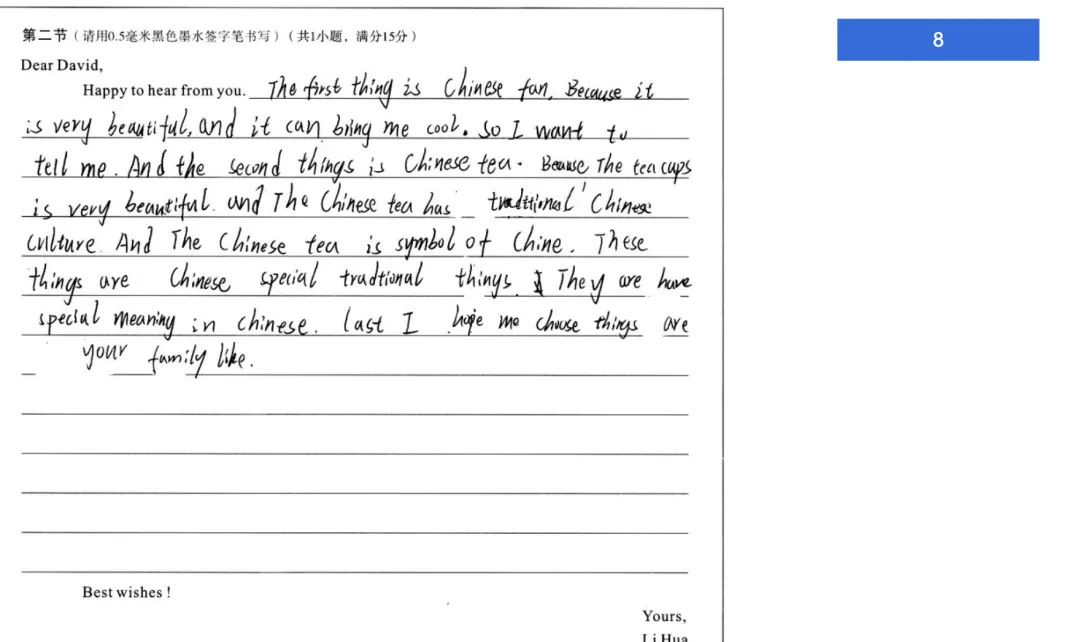 8
第二节（请用0.5毫米黑色墨水签字笔书写）（共1小题，满分15分）
Dear David,
Happy to hear from you. The first thing is Chinese fan, Because it
is very beautiful, and it can bring me cool. So I want to
tell me. And the second things is Chinese tea. Beause The tea cups
is very beautiful. and The Chinese tea has traditional Chinese
culture. And The Chinese tea is symbol of Chine. These
things are Chinese special tradtional things. They are have
special meaning in chinese. last I hope me choose things are
your family like.
Best wishes!
Yours,
Li Hua